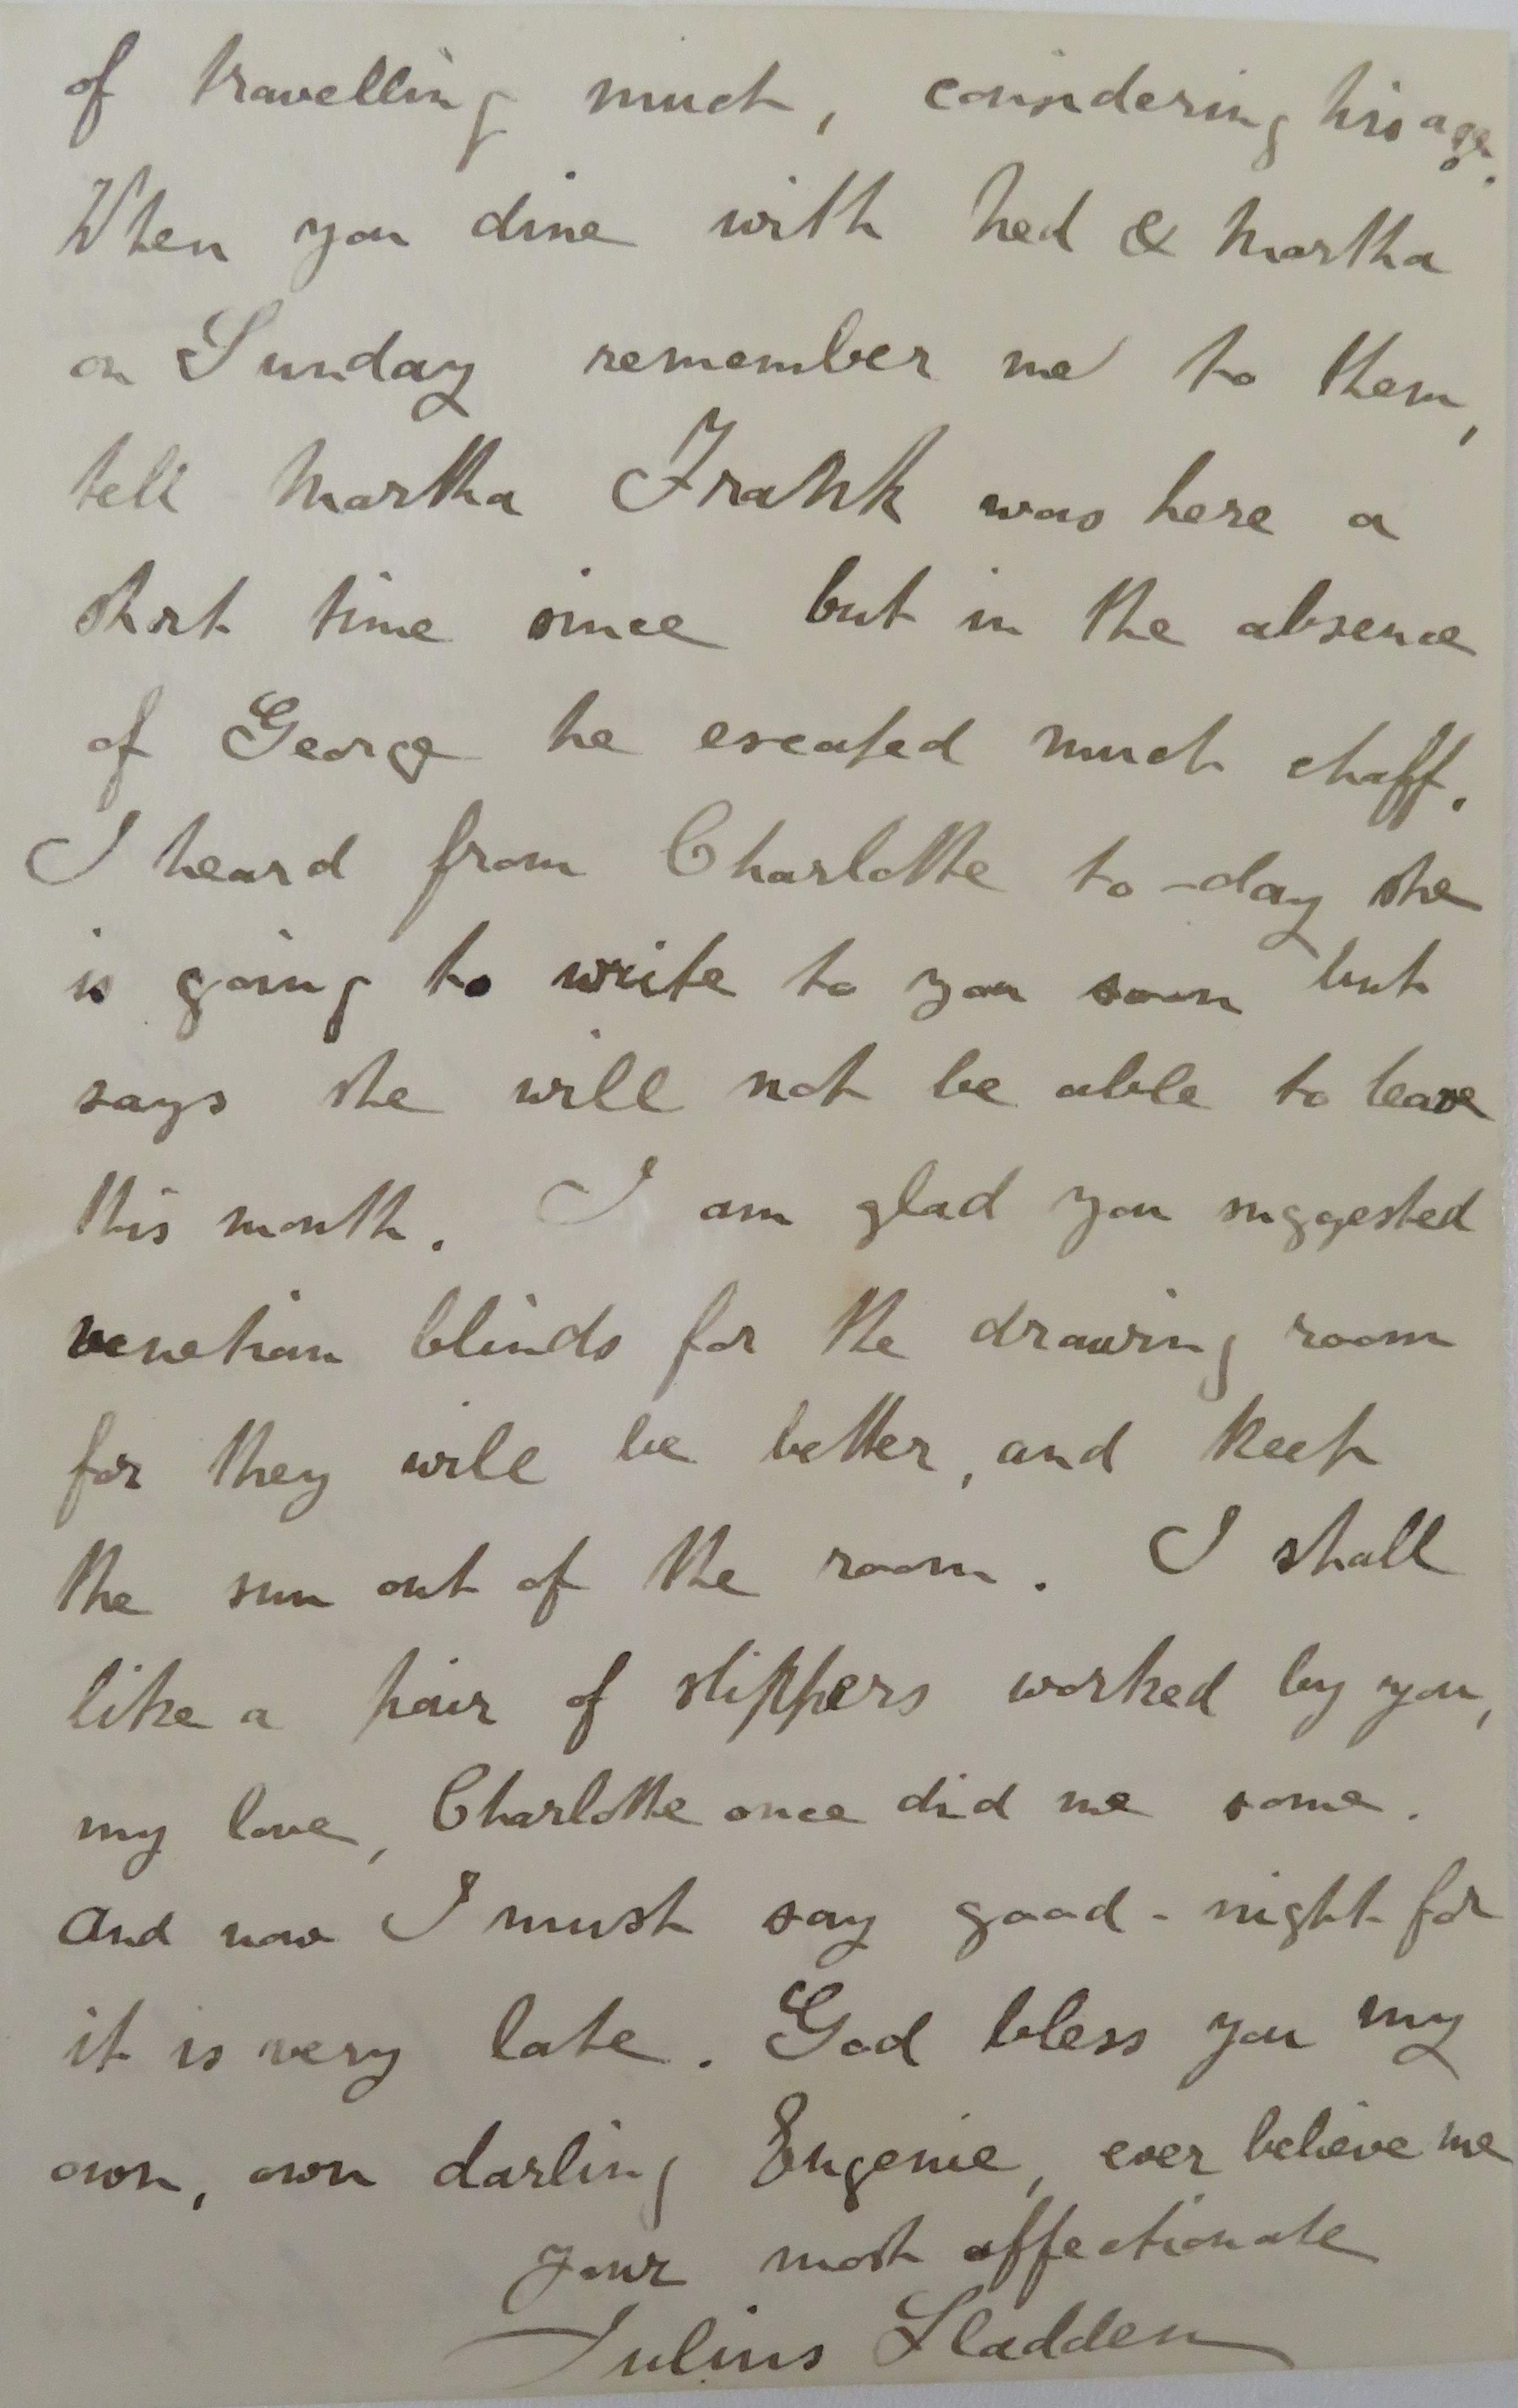 of travelling much, considering his age.
When you dine with Ned & Martha
on Sunday remember me to them,
tell Martha Frank was here a
short time since but in the absence
of George he escaped much chaff.
I heard from Charlotte to-day she
is going to write to you soon but
says she will not be able to leave
this month. I am glad you suggested
venetian blinds for the drawing room
for they will be better, and keep
the sun out of the room. I shall
like a pair of slippers worked by you,
my love, Charlotte once did me some.
And now I must say good-night for
it is very late. God bless you my
own, own darling Eugenie, ever believe me
your most affectionate
Julius Sladden